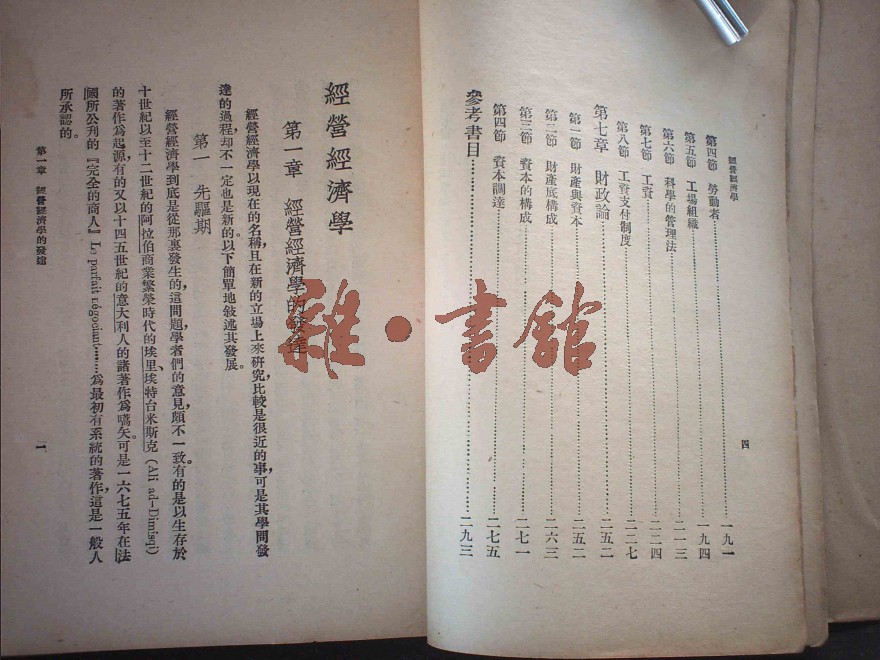 經營經濟學
第四節 勞動者…………一九一
第五節 工場組織…………一九四
第六節 科學的管理法…………二一三
第七節 工資…………二二四
第八節 工資支付制度…………二二七
第七章 財政論…………二五二
第一節 財產與資本…………二五二
第二節 財產底構成…………二六三
第三節 資本的構成…………二七一
第四節 資本調達…………二七五
參考書目…………二九三
四
經營經濟學
第一章 經營經濟學的發達
經營經濟學以現在的名稱,且在新的立場上來研究比較是很近的事,可是其學問發
達的過程,却不一定也是新的。以下簡單地敍述其發展。
第一 先驅期
經營經濟學到底是從那裏發生的,這問題,學者們的意見,頗不一致。有的是以生存於
十世紀以至十二世紀的阿拉伯商業繁榮時代的埃里、埃特台米斯克(Ali ad-Dimisqi)
的著作爲起源,有的又以十四五世紀的意大利人的諸著作爲嚆矢。可是一六七五年在法
國所公刋的『完全的商人』Le parfait négociant……爲最初有系統的著作,這是一般人
所承認的。
第一章 經營經濟學的發達
一
雜·書館